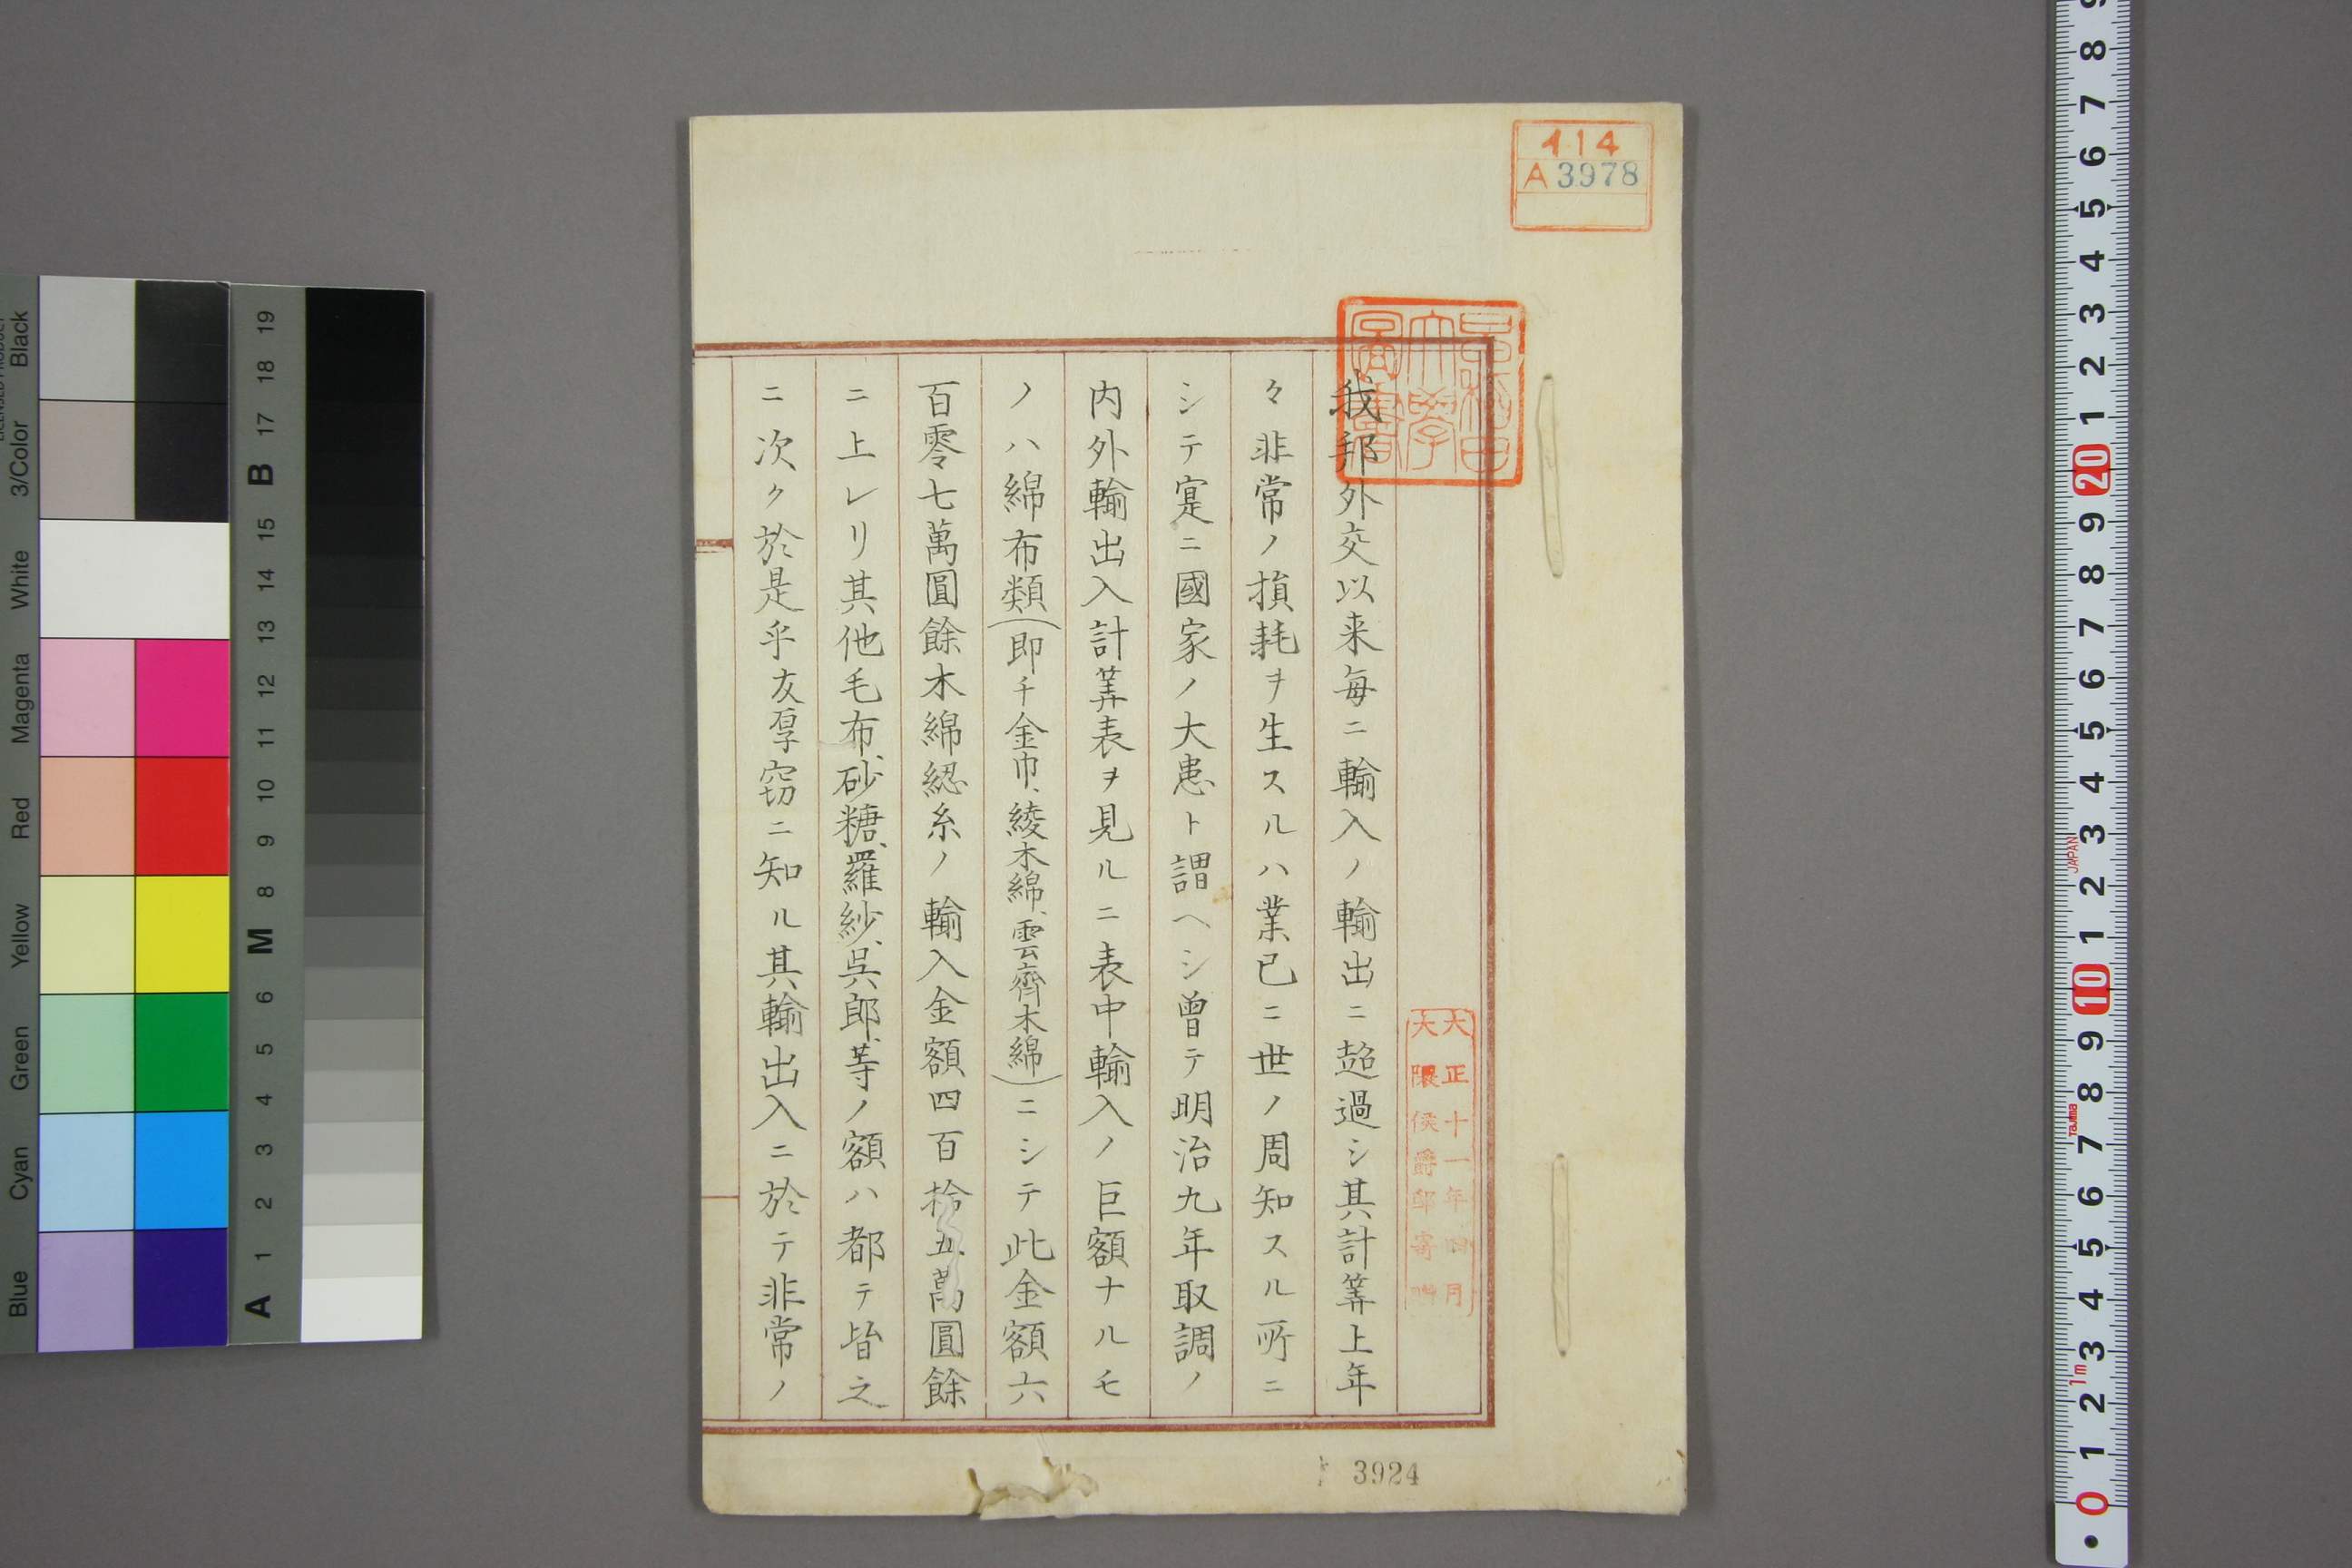 414
A 3978
早稲田大學圖書
大正十一年四月
大隈侯爵邸寄贈
我邦外交以来毎ニ輸入ノ輸出ニ超過シ其計筭上年
々非常ノ損耗ヲ生スルハ業已ニ世ノ周知スル所ニ
シテ寔ニ國家ノ大患ト謂ヘシ曽テ明治九年取調ノ
内外輸出入計筭表ヲ見ルニ表中輸入ノ巨額ナルモ
ノハ綿布類(即千金巾、綾木綿、雲齊木綿)ニシテ此金額六
百零七萬圓餘木綿綛糸ノ輸入金額四百拾五萬圓餘
ニ上レリ其他毛布、砂糖、羅紗、呉郎、等ノ額ハ都テ皆之
ニ次ク於是乎友厚窃ニ知ル其輸出入ニ於テ非常ノ
3924
Black
3/Color
White
Magenta
Red
Yellow
Green
Cyan
Blue
19 18 17 B 15 14 13 12 11 10 9 8 M 6 5 4 3 2 1 A
9 8 7 6 5 4 3 2 1 20 9 8 7 6 5 4 3 2 1 10 9 8 7 6 5 4 3 2 1 0
JAPAN
Tajima
1m